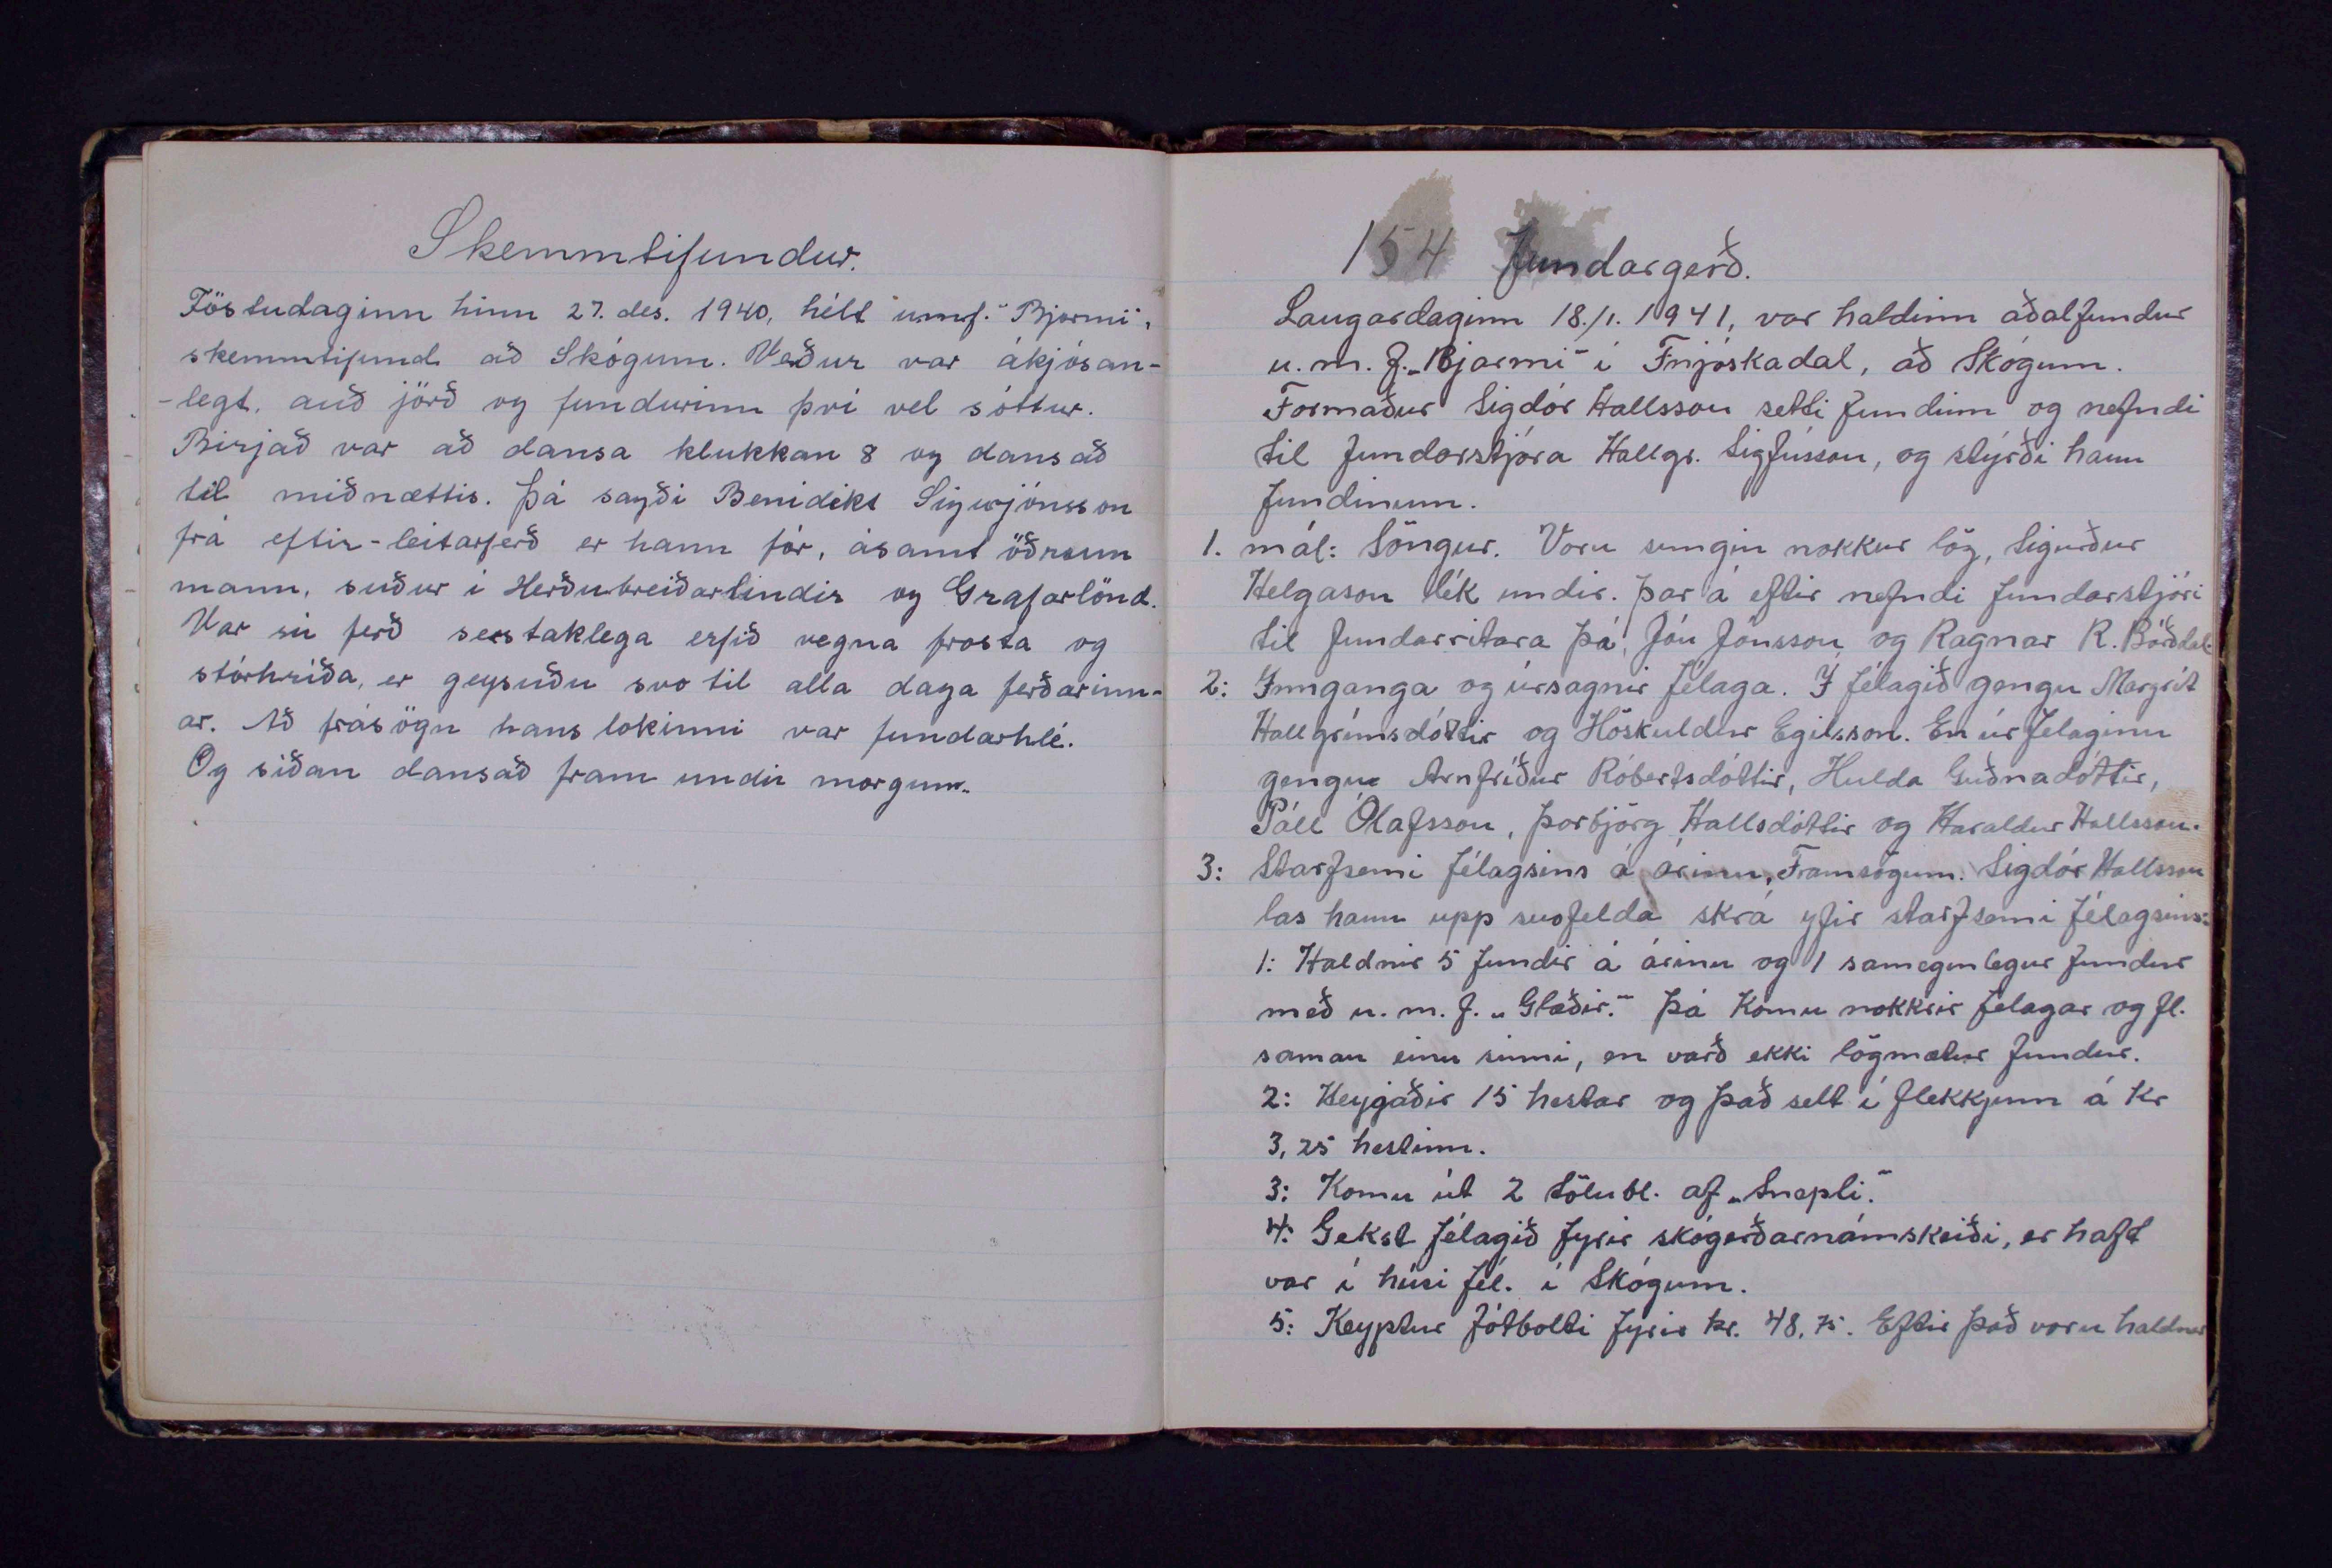 Skemmtifundur.
Föstudaginn hinn 27. des. 1940, hélt umf. "Bjarmi",
skemmtifund að Skógum. Veður var ákjósan-
-legt, auð jörð og fundurinn því vel sóttur.
Birjað var að dansa klukkan 8 og dansað
til miðnættis. Þá sagði Benidikt Sigurjónsson
frá eftir-leitarferð er hann fór, ásamt öðrum
mann, suður í Herðubreiðarlindir og Grafarlönd.
Var sú ferð serstaklega erfið vegna frosta og
stórhríða, er geysuðu svo til alla daga ferðarinn-
ar. Að frásögn hans lokinni var fundarhlé.
Og síðan dansað fram undir morgun.
154 Fundargerð.
Laugardaginn 18./1. 1941, var haldinn aðalfundur
u.m.f. „Bjarmi" í Fnjóskadal, að Skógum.
Formaður Sigdór Hallsson setti fundinn og nefndi
til fundarstjóra Hallgr. Sigfússon, og stýrði hann
fundinum.
1. mál: Söngur. Voru sungin nokkur lög, Sigurður
Helgason lék undir. Þar á eftir nefndi fundarstjóri
til fundarritara þá, Jón Jónsson, og Ragnar R. Bárðdal.
2: Innganga og úrsagnir félaga. Í félagið gengu Margrét
Hallgrímsdóttir og Höskuldur Egilsson. En úr felaginu
gengu Arnfríður Róbertsdóttir, Hulda Guðnadóttir,
Páll Ólafsson, Þorbjörg Hallsdóttir og Haraldur Hallsson.
3: Starfsemi félagsins á árinu, Framsögum. Sigdór Hallsson
las hann upp svofelda skrá yfir starfsemi félagsins:
1: Haldnir 5 fundir á árinu og 1 samegenlegur fundur
með u.m.f. „Glæðir." Þá komu nokkrir felagar og fl.
saman einu sinni, en varð ekki lögmætur fundur.
2: Heyjaðir 15 hestar og það selt í flekkjum á kr
3,25 hestinn.
3: Komu út 2 tölubl. af „Snepli."
4: Gekst félagið fyrir skógerðarnámskeiði, er haft
var í húsi fél. í Skógum.
5: Keyptur fótbolti fyrir kr. 48,75. Eftir það voru haldnar